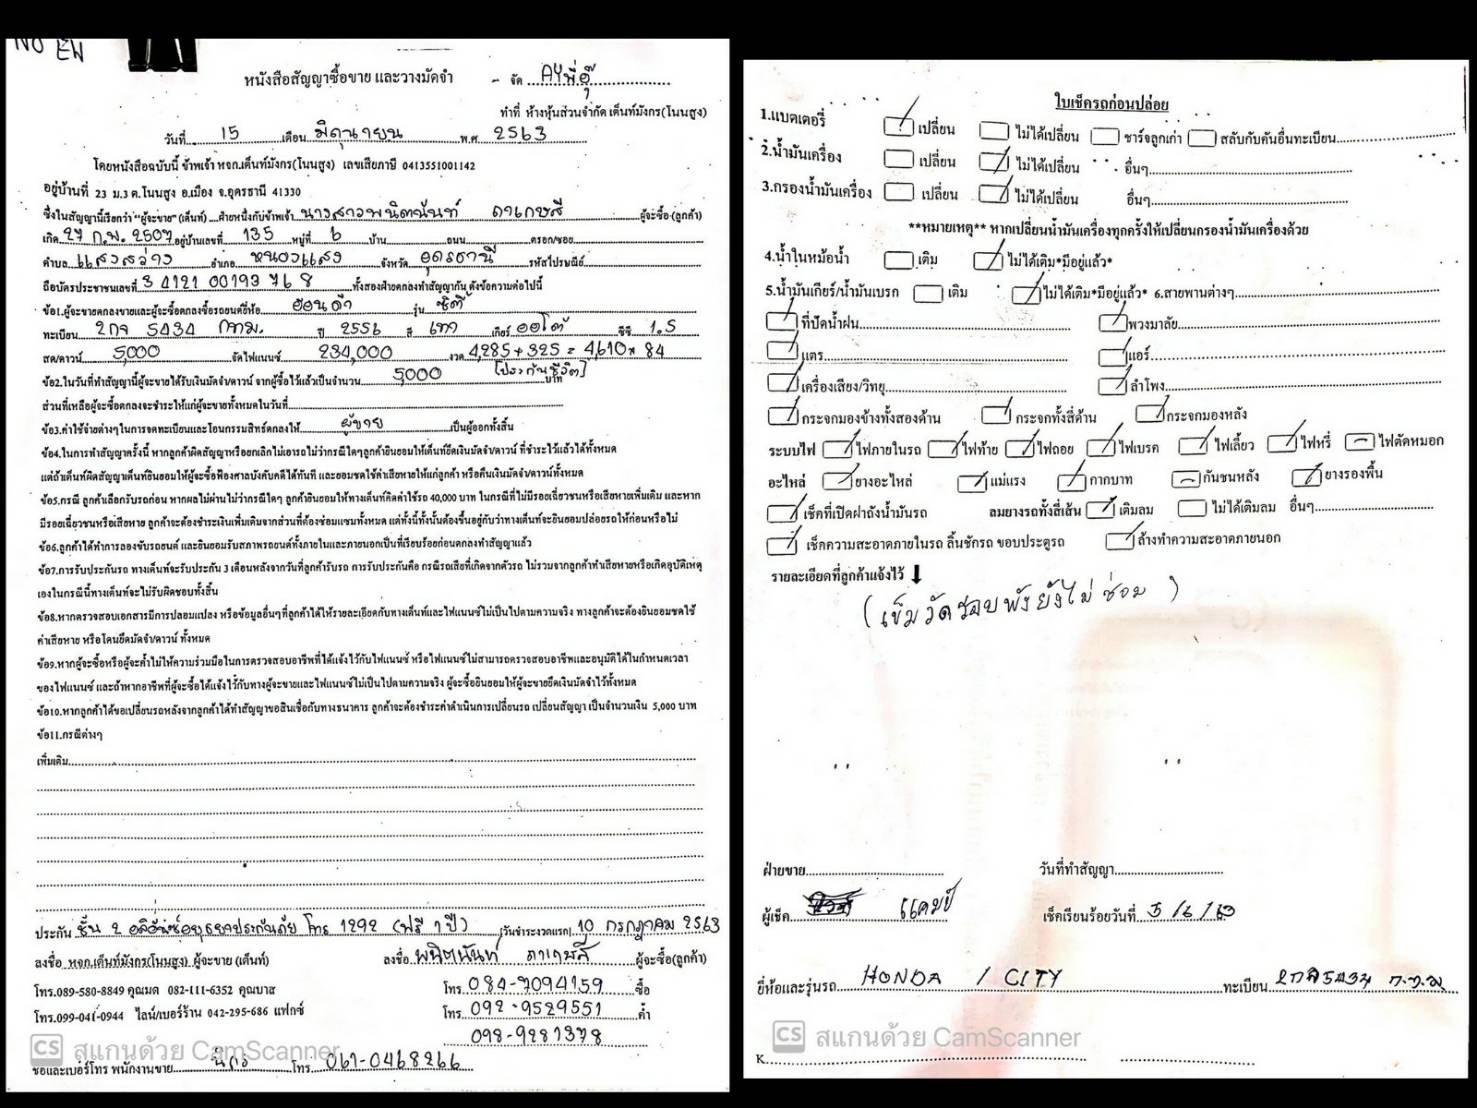 NO EN
หนังสือสัญญาซื้อขาย และวางมัดจำ - จัด AYพี่อุ๊
ทำที่ ห้างหุ้นส่วนจำกัด เต็นท์มังกร(โนนสูง)
วันที่ 15 เดือน มิถุนายน พ.ศ 2563
โดยหนังสือฉบับนี้ ข้าพเจ้า หจก.เต็นท์มังกร(โนนสูง) เลขเสียภาษี 0413551001142
อยู่บ้านที่ 23 ม.3 ต.โนนสูง อ.เมือง จ.อุดรธานี 41330
ซึ่งในสัญญานี้เรียกว่า "ผู้จะขาย" (เต็นท์) ฝ่ายหนึ่งกับข้าพเจ้า นางสาวพนิตนันท์ ดาเกษลี ผู้จะซื้อ-(ลูกค้า)
เกิด 27 ก.พ. 2507 อยู่บ้านเลขที่ 135 หมู่ที่ 6 บ้าน ถนน ตรอก/ซอย
ตำบล แสงสว่าง อำเภอ หนองแสง จังหวัด อุดรธานี รหัสไปรษณีย์
ถือบัตรประชาชนเลขที่ 3 4121 00193 76 8 ทั้งสองฝ่ายตกลงทำสัญญากัน ดังข้อความต่อไปนี้
ข้อ1.ผู้จะขายตกลงขายและผู้จะซื้อตกลงซื้อรถยนต์ยี่ห้อ ฮอนด้า รุ่น ซิตี้
ทะเบียน 2กจ 5434 กทม. ปี 2556 สี เทา เกียร์ ออโต้ ซีซี 1.5
สด/ดาวน์ 5,000 จัดไฟแนนซ์ 234,000 งวด 4,285 + 325 = 4,610 x 84
ข้อ2.ในวันที่ทำสัญญานี้ผู้จะขายได้รับเงินมัดจำ/ดาวน์ จากผู้ซื้อไว้แล้วเป็นจำนวน 5000 บาท [ประกันชีวิต]
ส่วนที่เหลือผู้จะซื้อตกลงจะชำระให้แก่ผู้จะขายทั้งหมดในวันที่
ข้อ3.ค่าใช้จ่ายต่างๆในการจดทะเบียนและโอนกรรมสิทธิ์ตกลงให้ ผู้ขาย เป็นผู้ออกทั้งสิ้น
ข้อ4.ในการทำสัญญาครั้งนี้ หากลูกค้าผิดสัญญาหรือยกเลิกไม่เอารถไม่ว่ากรณีใดๆลูกค้ายินยอมให้เต็นท์ยึดเงินมัดจำ/ดาวน์ ที่ชำระไว้แล้วได้ทั้งหมด
แต่ถ้าเต็นท์ผิดสัญญาเต็นท์ยินยอมให้ผู้จะซื้อฟ้องศาลบังคับคดีได้ทันที และยอมชดใช้ค่าเสียหายให้แก่ลูกค้า หรือคืนเงินมัดจำ/ดาวน์ทั้งหมด
ข้อ5.กรณี ลูกค้าเลือกรับรถก่อน หากผลไม่ผ่านไม่ว่ากรณีใดๆ ลูกค้ายินยอมให้ทางเต็นท์คิดค่าใช้รถ 40,000 บาท ในกรณีที่ไม่มีรอยเฉี่ยวชนหรือเสียหายเพิ่มเติม และหาก
มีรอยเฉี่ยวชนหรือเสียหาย ลูกค้าจะต้องชำระเงินเพิ่มเติมจากส่วนที่ต้องซ่อมแซมทั้งหมด แต่ทั้งนี้ทั้งนั้นต้องขึ้นอยู่กับว่าทางเต็นท์จะยินยอมปล่อยรถให้ก่อนหรือไม่
ข้อ6.ลูกค้าได้ทำการลองขับรถยนต์ และยินยอมรับสภาพรถยนต์ทั้งภายในและภายนอกเป็นที่เรียบร้อยก่อนตกลงทำสัญญาแล้ว
ข้อ7.การรับประกันรถ ทางเต็นท์จะรับประกัน 3 เดือนหลังจากวันที่ลูกค้ารับรถ การรับประกันคือ กรณีรถเสียที่เกิดจากตัวรถ ไม่รวมจากลูกค้าทำเสียหายหรือเกิดอุบัติเหตุ
เองในกรณีนี้ทางเต็นท์จะไม่รับผิดชอบทั้งสิ้น
ข้อ8.หากตรวจสอบเอกสารมีการปลอมแปลง หรือข้อมูลอื่นๆที่ลูกค้าได้ให้รายละเอียดกับทางเต็นท์และไฟแนนซ์ไม่เป็นไปตามความจริง ทางลูกค้าจะต้องยินยอมชดใช้
ค่าเสียหาย หรือโดนยึดมัดจำ/ดาวน์ ทั้งหมด
ข้อ9.หากผู้จะซื้อหรือผู้จะค้ำไม่ให้ความร่วมมือในการตรวจสอบอาชีพที่ได้แจ้งไว้กับไฟแนนซ์ หรือไฟแนนซ์ไม่สามารถตรวจสอบอาชีพและอนุมัติได้ในกำหนดเวลา
ของไฟแนนซ์ และถ้าหากอาชีพที่ผู้จะซื้อได้แจ้งไว้กับทางผู้จะขายและไฟแนนซ์ไม่เป็นไปตามความจริง ผู้จะซื้อยินยอมให้ผู้จะขายยึดเงินมัดจำไว้ทั้งหมด
ข้อ10.หากลูกค้าได้ขอเปลี่ยนรถหลังจากลูกค้าได้ทำสัญญาขอสินเชื่อกับทางธนาคาร ลูกค้าจะต้องชำระค่าดำเนินการเปลี่ยนรถ เปลี่ยนสัญญา เป็นจำนวนเงิน 5,000 บาท
ข้อ11.กรณีต่างๆ
เพิ่มเติม
ประกัน ชั้น 2 อลิอันซ์อยุธยาประกันภัย โทร 1292 (ฟรี 1 ปี) วันชำระงวดแรก 10 กรกฎาคม 2563
ลงชื่อ หจก.เต็นท์มังกร(โนนสูง) ผู้จะขาย (เต็นท์) ลงชื่อ พนิตนันท์ ดาเกษลี ผู้จะซื้อ(ลูกค้า)
โทร.089-580-8849 คุณมด 082-111-6352 คุณบาส โทร. 084-7094159 ซื้อ
โทร.099-041-0944 ไลน์/เบอร์ร้าน 042-295-686 แฟกซ์ โทร. 092-9529551 ค้ำ
098-9281378
CS สแกนด้วย CamScanner
ชื่อและเบอร์โทร พนักงานขาย นิกร โทร. 061-0468266
ใบเช็ครถก่อนปล่อย
1.แบตเตอรี่ เปลี่ยน ไม่ได้เปลี่ยน ชาร์จลูกเก่า สลับกับคันอื่นทะเบียน
2.น้ำมันเครื่อง เปลี่ยน ไม่ได้เปลี่ยน อื่นๆ
3.กรองน้ำมันเครื่อง เปลี่ยน ไม่ได้เปลี่ยน อื่นๆ
**หมายเหตุ** หากเปลี่ยนน้ำมันเครื่องทุกครั้งให้เปลี่ยนกรองน้ำมันเครื่องด้วย
4.น้ำในหม้อน้ำ เติม ไม่ได้เติม*มีอยู่แล้ว*
5.น้ำมันเกียร์/น้ำมันเบรก เติม ไม่ได้เติม*มีอยู่แล้ว* 6.สายพานต่างๆ
ที่ปัดน้ำฝน พวงมาลัย
แตร แอร์
เครื่องเสียง/วิทยุ ลำโพง
กระจกมองข้างทั้งสองด้าน กระจกทั้งสี่ด้าน กระจกมองหลัง
ระบบไฟ ไฟภายในรถ ไฟท้าย ไฟถอย ไฟเบรค ไฟเลี้ยว ไฟหรี่ ไฟตัดหมอก
อะไหล่ ยางอะไหล่ แม่แรง กากบาท กันชนหลัง ยางรองพื้น
เช็คที่เปิดฝาถังน้ำมันรถ ลมยางรถทั้งสี่เส้น เติมลม ไม่ได้เติมลม อื่นๆ
เช็คความสะอาดภายในรถ ลิ้นชักรถ ขอบประตูรถ ล้างทำความสะอาดภายนอก
รายละเอียดที่ลูกค้าแจ้งไว้
(เข็มวัดรอบพังยังไม่ซ่อม)
ฝ่ายขาย วันที่ทำสัญญา
ผู้เช็ค แคมป์ เช็คเรียบร้อยวันที่ 5/6/63
ยี่ห้อและรุ่นรถ HONDA / CITY ทะเบียน 2กจ5434 ก.ท.ม.
CS สแกนด้วย CamScanner
K.